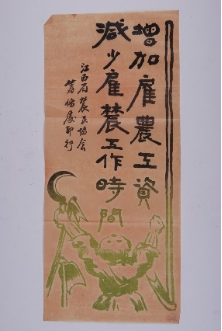 增加雇農工資
減少雇農工作時間
江西省農民協會
籌備處印行